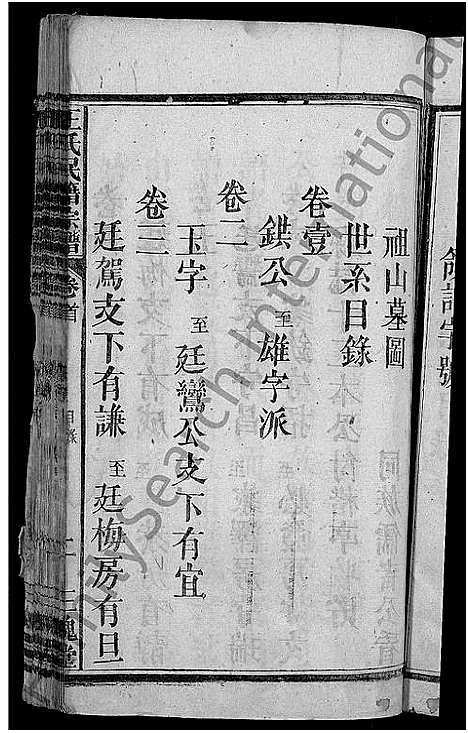 領譜字號
祖山墓圖
世系目錄
卷壹
鉷公至雄字派
卷二
玉字至廷鸞公支下有宜
卷三
廷駕支下有謙至廷梅房有旦
王氏民籍宗譜 卷首 目錄 二 三槐堂
FamilySearch International